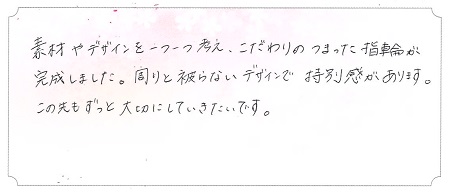 素材やデザインを一つ一つ考え、こだわりのつまった指輪が
完成しました。周りと被らないデザインで特別感があります。
この先もずっと大切にしていきたいです。